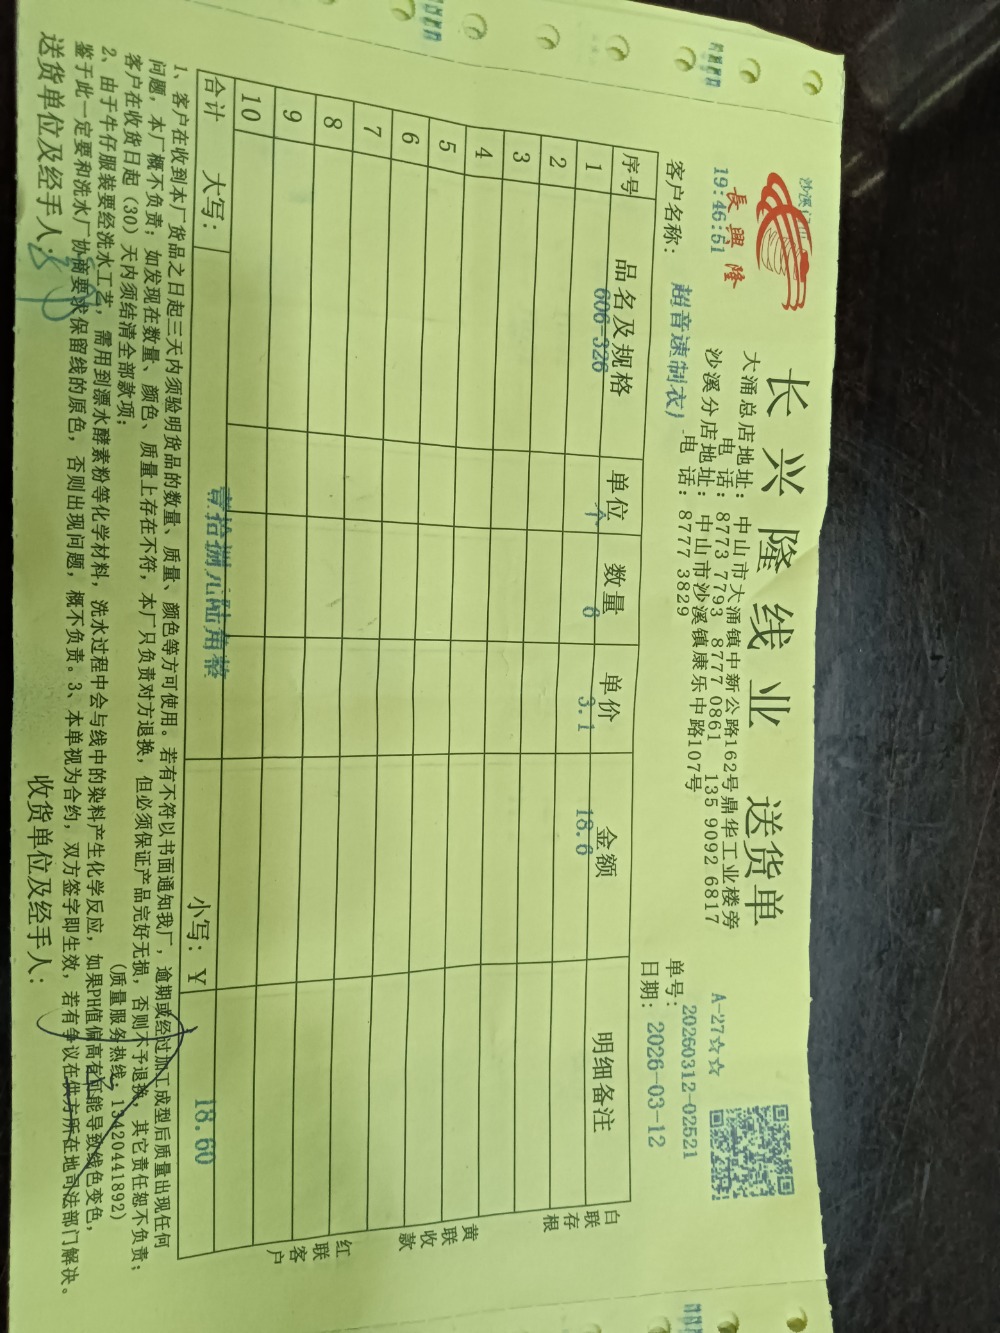 长兴隆线业 送货单
長興隆
19:46:51
大涌总店地址：中山市大涌镇中新公路162号鼎华工业楼旁
电话：8773 7793 8777 0861 135 9092 6817
沙溪分店地址：中山市沙溪镇康乐中路107号
电话：8777 3829
A-27☆☆
单号：20260312-02521
客户名称：超音速制衣）
日期：2026-03-12
序号 品名及规格 单位 数量 单价 金额 明细备注
1 606-326 个 6 3.1 18.6
2
3
4
5
6
7
8
9
10
合计 大写：壹拾捌元陆角整 小写：￥ 18.60
白联存根
黄联收款
红联客户
1、客户在收到本厂货品之日起三天内须验明货品的数量、质量、颜色等方可使用。若有不符以书面通知我厂，逾期或经过加工成型后质量出现任何
问题，本厂概不负责；如发现在数量、颜色、质量上存在不符，本厂只负责对方退换，但必须保证产品完好无损，否则不予退换，其它责任恕不负责；
客户在收货日起（30）天内须结清全部款项； （质量服务热线：13420441892）
2、由于牛仔服装要经洗水工艺，需用到漂水酵素粉等化学材料，洗水过程中会与线中的染料产生化学反应，如果PH值偏高有可能导致线色变色，
鉴于此一定要和洗水厂协商要求保留线的原色，否则出现问题，概不负责。3、本单视为合约，双方签字即生效，若有争议在供方所在地司法部门解决。
送货单位及经手人： 收货单位及经手人：